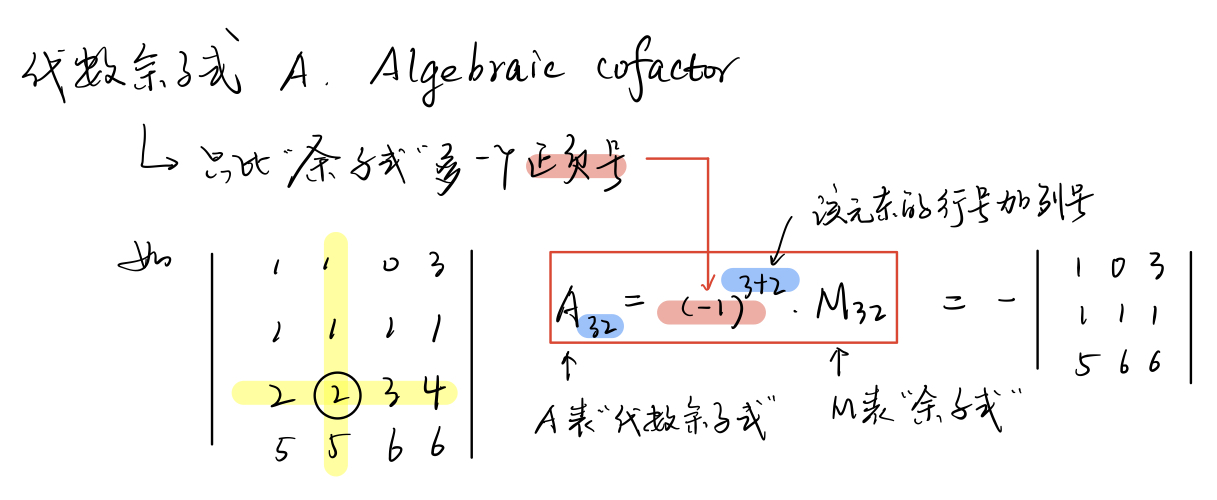 代数余子式 A. Algebraic cofactor
只比“余子式”多一个正负号
该元素的行号加列号
如
1 1 0 3
1 1 1 1
2 2 3 4
5 5 6 6
A32 = (-1)^3+2 · M32 = -
1 0 3
1 1 1
5 6 6
A表“代数余子式”
M表“余子式”